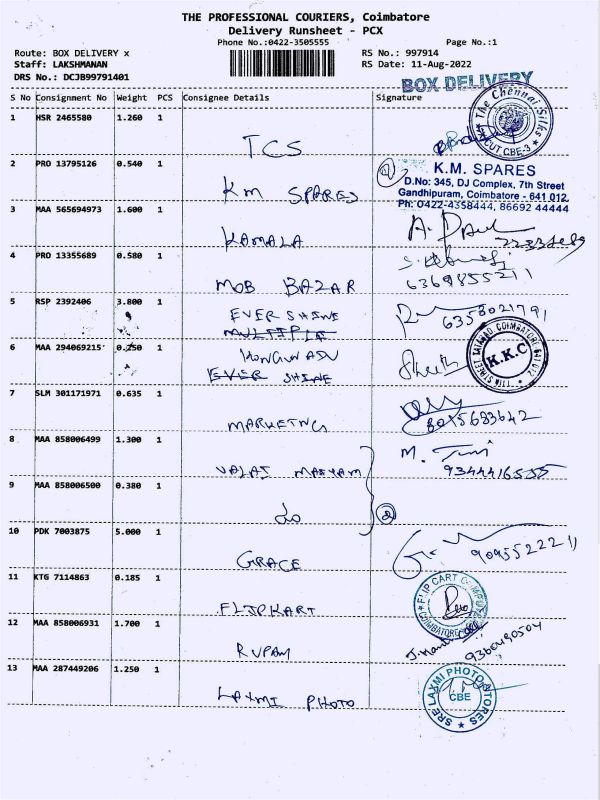 THE PROFESSIONAL COURIERS, Coimbatore
Delivery Runsheet - PCX
Phone No.:0422-3505555 Page No.:1
Route: BOX DELIVERY x RS No.: 997914
Staff: LAKSHMANAN RS Date: 11-Aug-2022
DRS No.: DCJB99791401
BOX DELIVERY
S No Consignment No Weight PCS Consignee Details Signature
1 HSR 2465580 1.260 1
The Chennai Silks
CUT CBE-3
TCS
2 PRO 13795126 0.540 1
K.M. SPARES
D.No: 345, DJ Complex, 7th Street
Gandhipuram, Coimbatore - 641 012.
Ph: 0422-4358444, 86692 44444
KM SPARES
3 MAA 565694973 1.600 1
KAMALA
4 PRO 13355689 0.580 1
6369855211
MOB BAZAR
5 RSP 2392406 3.800 1
EVER SHINE
6358021791
6 MAA 294069215 0.250 1
K.K.C
EVER SHINE
7 SLM 301171971 0.635 1
8015683642
MARKETNG
8 MAA 858006499 1.300 1
M.
9344416555
9 MAA 858006500 0.380 1
do
2
10 PDK 7003875 5.000 1
9095522211
GRACE
11 KTG 7114863 0.185 1
FLIP CART
COIMBATORE
FLIPKART
12 MAA 858006931 1.700 1
9360490504
RUPAM
13 MAA 287449206 1.250 1
SRE LAXMI PHOTO STORES
CBE
LAXMI PHOTO